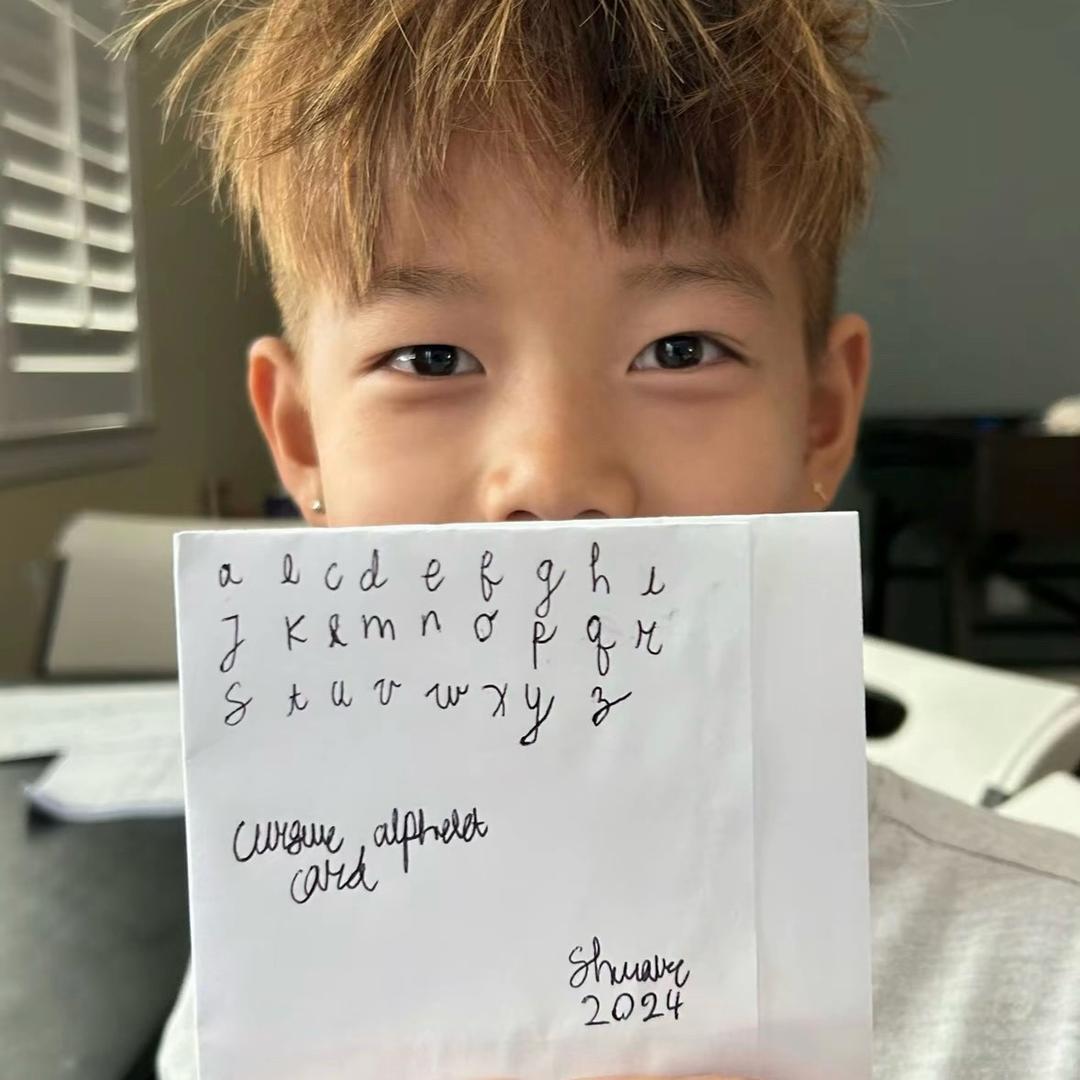 a b c d e f g h i
j k l m n o p q r
s t u v w x y z
cursive alphabet
card
2024